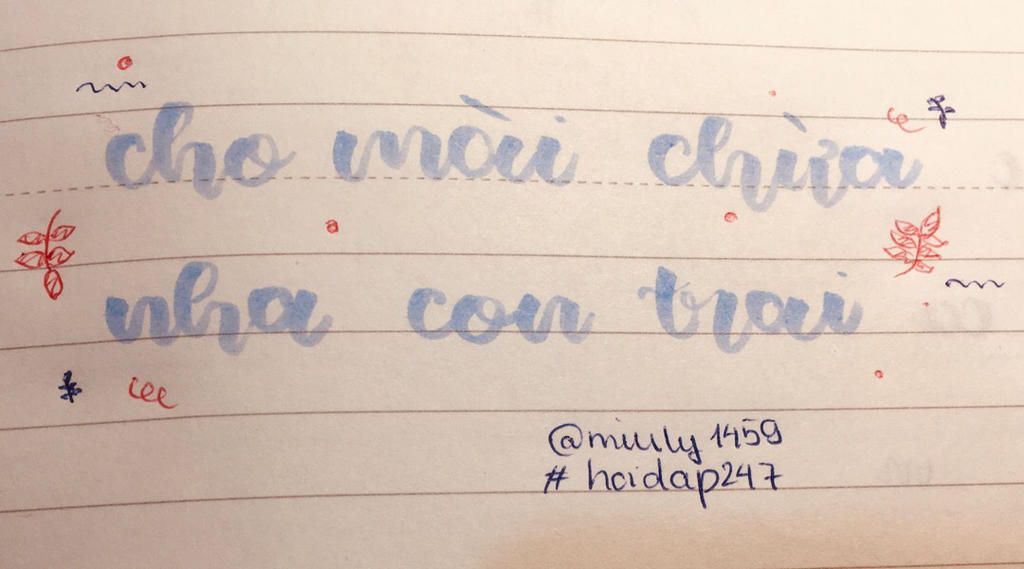 cho mòi chừa
nha con trai
@miuly1459
#hoidap247